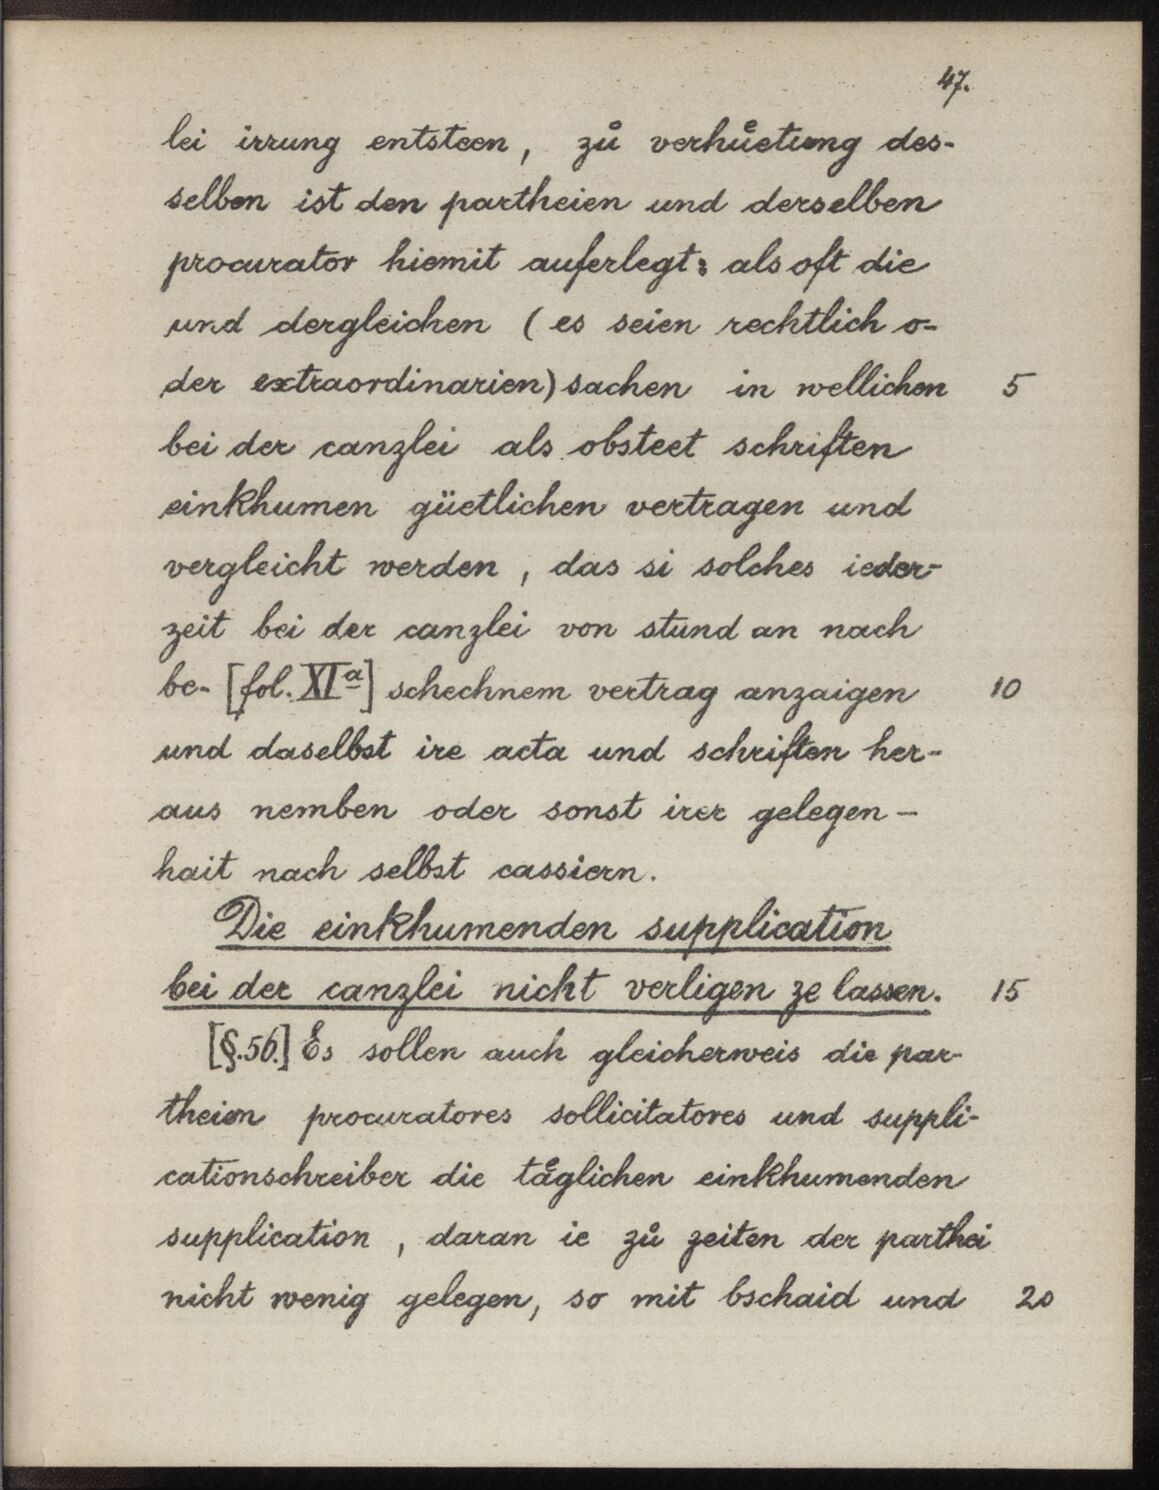 47.
lei irrung entsteen, zů verhuͤetung des-
selben ist den partheien und derselben
procurator hiemit auferlegt: als oft die
und dergleichen (es seien rechtlich o-
der extraordinarien) sachen in wellichen 5
bei der canzlei als obsteet schriften
einkhumen güetlichen vertragen und
vergleicht werden, das si solches ieder-
zeit bei der canzlei von stund an nach
be- [fol. XIª] schechnem vertrag anzaigen 10
und daselbst ire acta und schriften her-
aus nemben oder sonst irer gelegen-
hait nach selbst cassiern.
Die einkhumenden supplication
bei der canzlei nicht verligen ze lassen. 15
[§. 56.] Es sollen auch gleicherweis die par-
theien procuratores sollicitatores und suppli-
cationschreiber die taͤglichen einkhumenden
supplication, daran ie zů zeiten der parthei
nicht wenig gelegen, so mit bschaid und 20